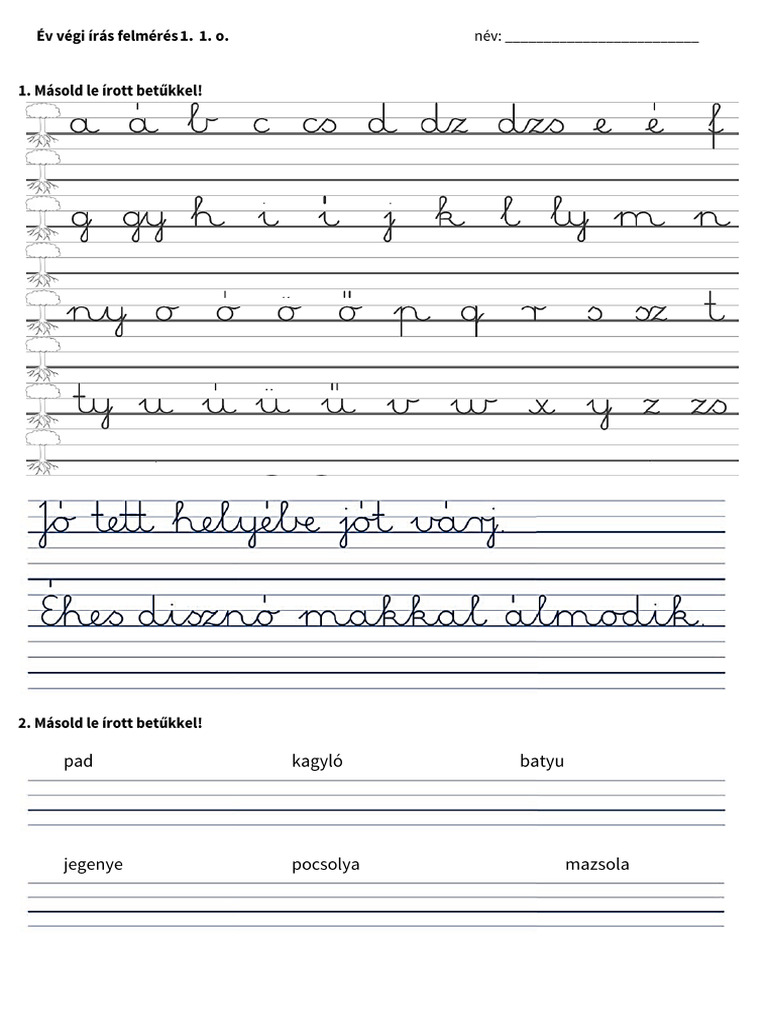 Év végi írás felmérés 1. 1. o. név: _________________________
1. Másold le írott betűkkel!
a á b c cs d dz dzs e é f
g gy h i í j k l ly m n
ny o ó ö ő p q r s sz t
ty u ú ü ű v w x y z zs
Jó tett helyébe jót várj.
Éhes disznó makkal álmodik.
2. Másold le írott betűkkel!
pad kagyló batyu
jegenye pocsolya mazsola